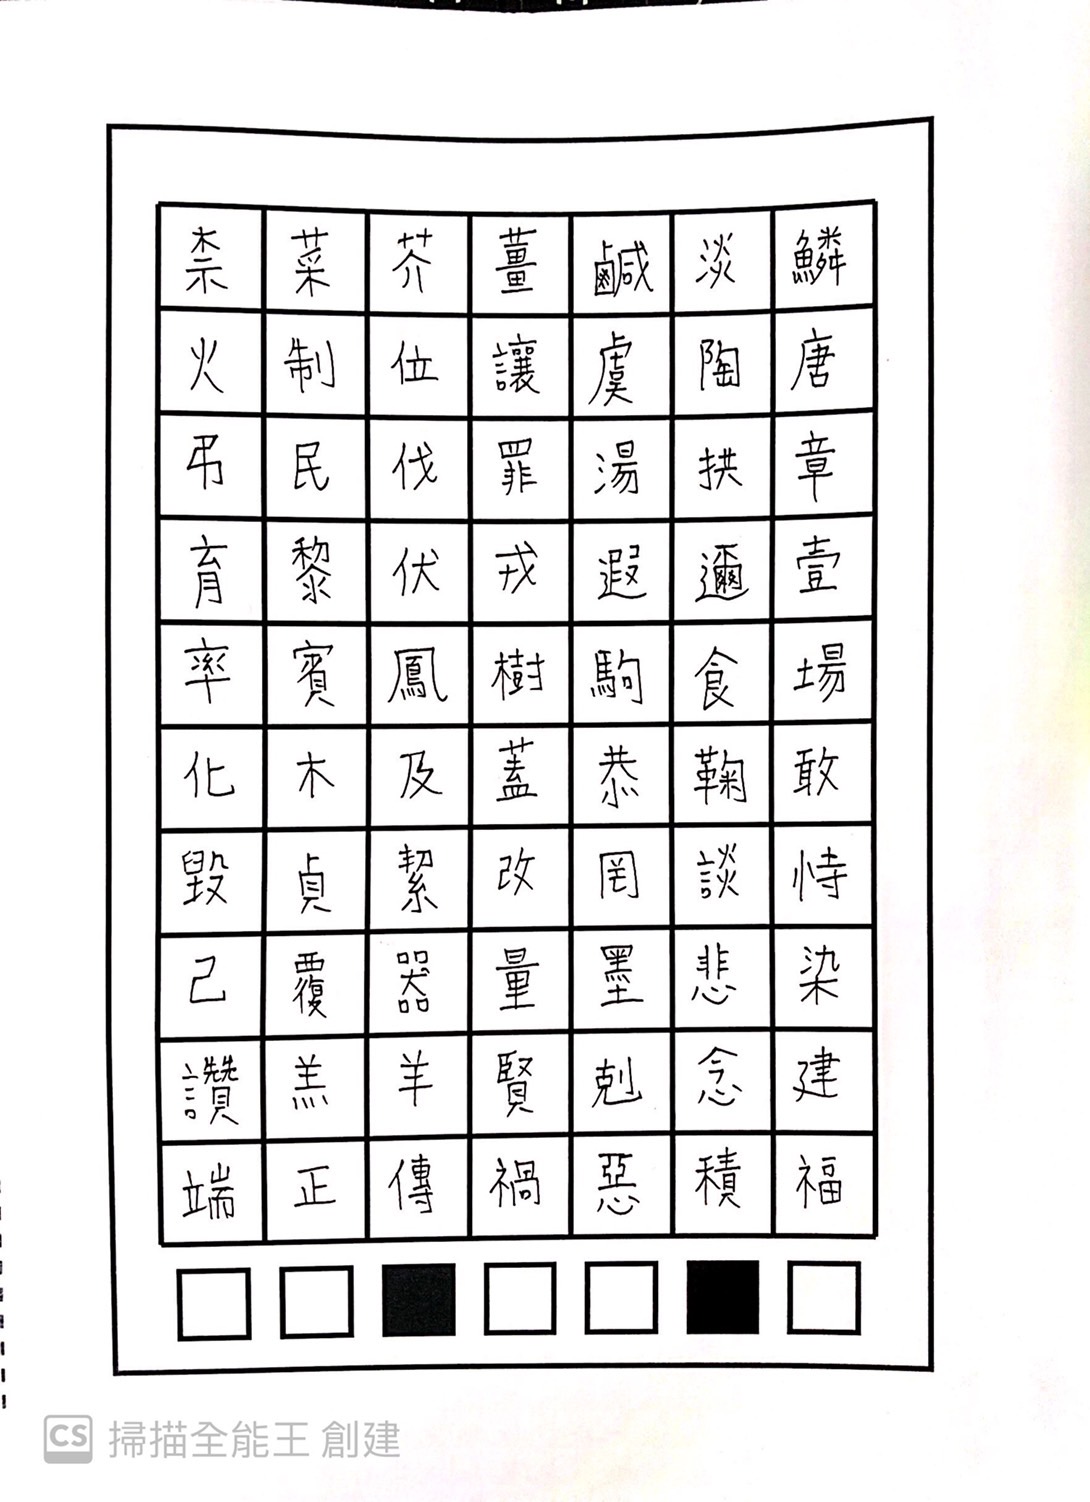 柰菜芥薑鹹淡鱗
火制位讓虞陶唐
弔民伐罪湯拱章
育黎伏戎遐邇壹
率賓鳳樹駒食場
化木及蓋恭鞠敢
毀貞絜改罔談恃
己覆器量墨悲染
讚羔羊賢剋念建
端正傳禍惡積福
CS 掃描全能王 創建